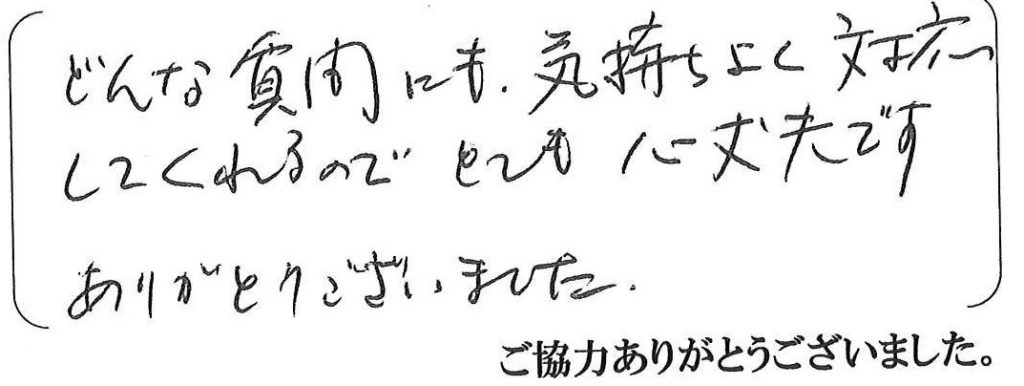 どんな質問にも、気持ちよく対応
してくれるのでとても心丈夫です
ありがとうございました。
ご協力ありがとうございました。